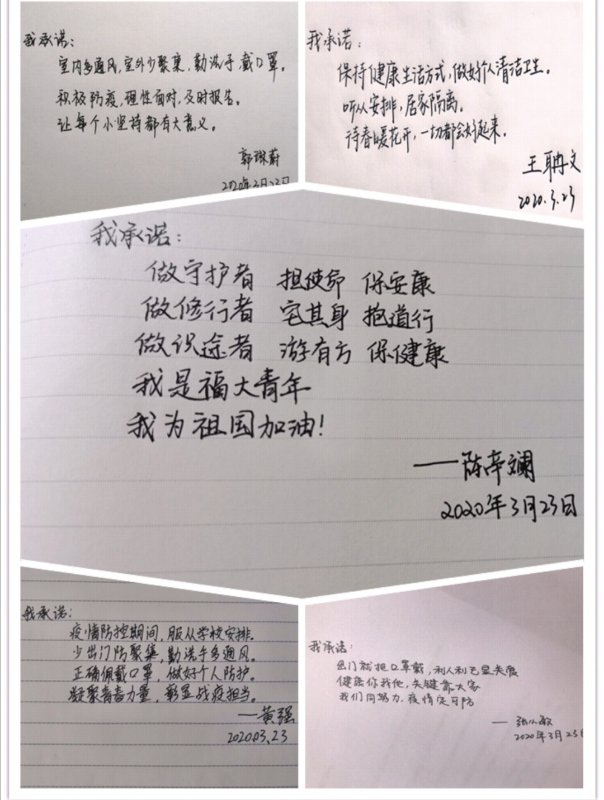 我承诺:
室内多通风,室外少聚集,勤洗手戴口罩。
积极防疫,理性面对,及时报告。
让每个小坚持都有大意义。
2020年3月23日
我承诺:
保持健康生活方式,做好个人清洁卫生。
听从安排,居家隔离。
待春暖花开,一切都会好起来。
王聃文
2020.3.23
我承诺:
做守护者 担使命 保安康
做修行者 宅其身 抱道行
做识途者 游有方 保健康
我是福大青年
我为祖国加油!
——陈幸斓
2020年3月23日
我承诺:
疫情防控期间,服从学校安排。
少出门防聚集,勤洗手多通风。
正确佩戴口罩,做好个人防护。
凝聚青春力量,彰显战疫担当。
——黄强
2020.03.23
我承诺:
出门就把口罩戴,利人利己显关爱
健康你我他,关键靠大家
我们同努力,疫情定可防
2020年3月23日